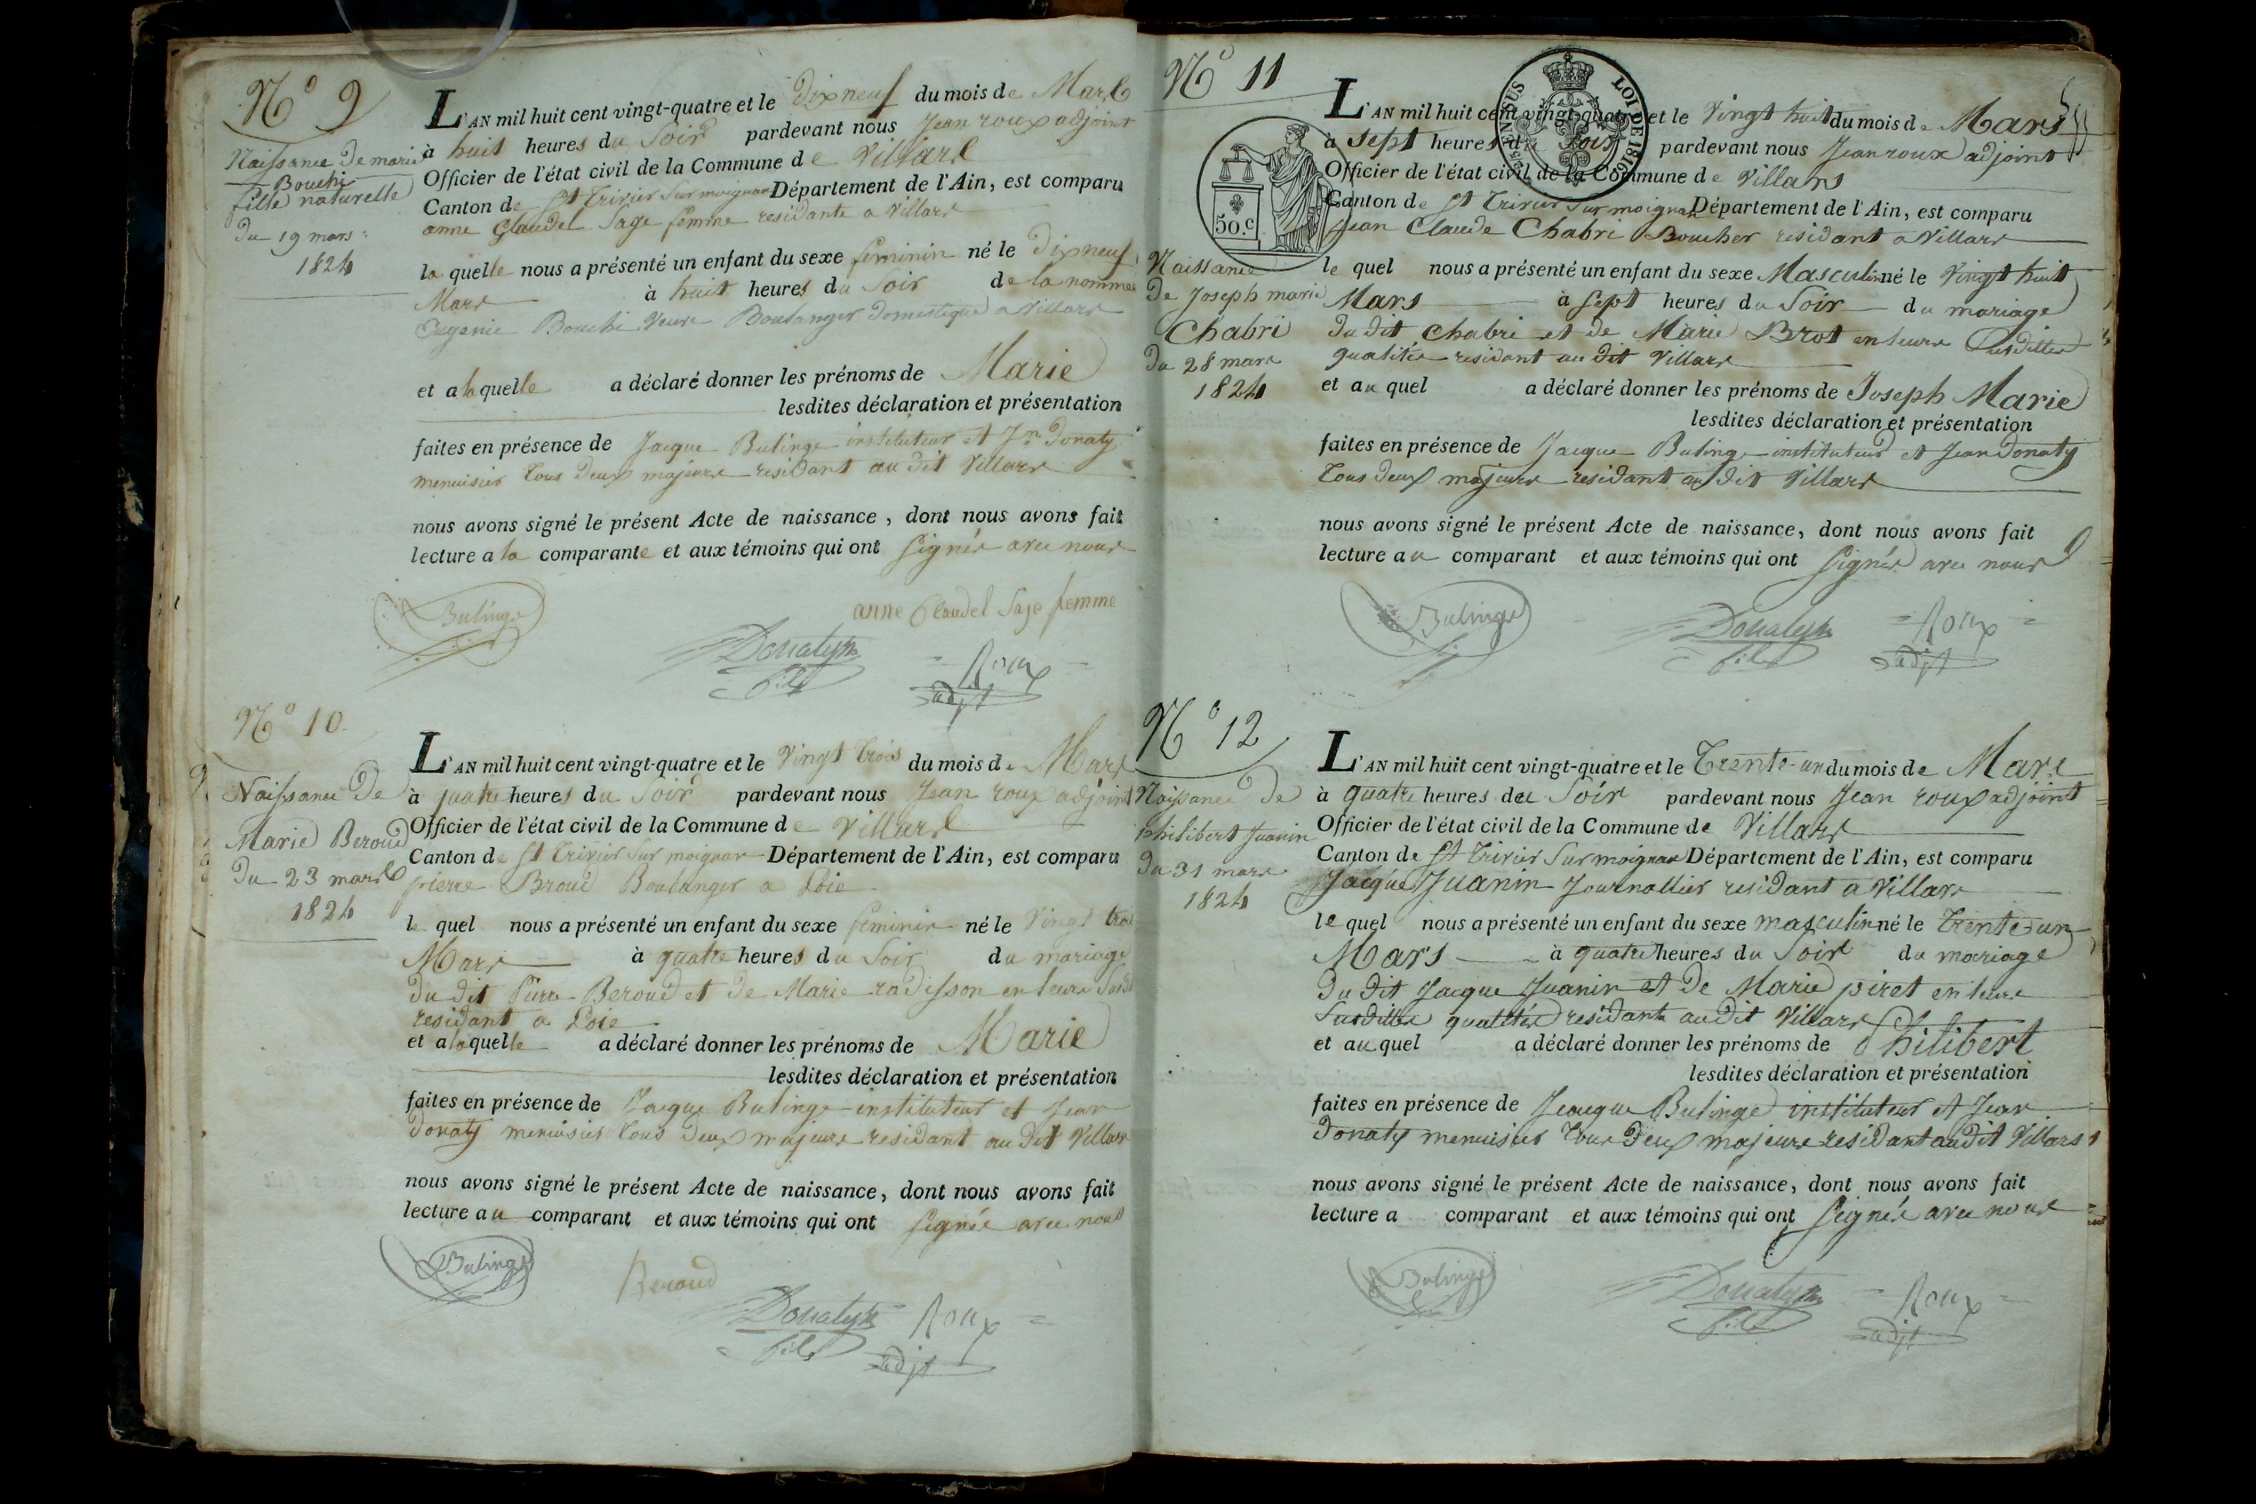 N° 9
Naissance de marie
Bouchi
fille naturelle
du 19 mars
1824
L'AN mil huit cent vingt-quatre et le Dixneuf du mois de Mars
à huit heures du Soir pardevant nous Jean roux adjoint
Officier de l'état civil de la Commune de Villars
Canton de St Trivier Sur moignan Département de l'Ain, est comparu
anne Glaudel Sage femme residante a Villars
la quelle nous a présenté un enfant du sexe feminin né le Dixneuf
Mars à huit heures du Soir de la nommée
Eugenie Bouchi Veuve Boulanger Domestique a Villars
et a laquelle a déclaré donner les prénoms de Marie
lesdites déclaration et présentation
faites en présence de Jacque Bulinge instituteur et Jn Donaty
menuisier tous deux majeurs residant au dit Villars
nous avons signé le présent Acte de naissance, dont nous avons fait
lecture a la comparante et aux témoins qui ont signés avec nous
Bulinge
anne Claudel Saje femme
Donaty
fils
Roux
adjt
N° 10
Naissance de
Marie Beroud
du 23 mars
1824
L'AN mil huit cent vingt-quatre et le Vingt trois du mois de Mars
à quatre heures du Soir pardevant nous Jean roux adjoint
Officier de l'état civil de la Commune de Villars
Canton de St Trivier Sur moignan Département de l'Ain, est comparu
pierre Broud Boulanger a Loie
le quel nous a présenté un enfant du sexe feminin né le Vingt trois
Mars à quatre heures du Soir du mariage
du dit Pierre Beroud et de Marie radisson en leurs
residant a Loie
et a laquelle a déclaré donner les prénoms de Marie
lesdites déclaration et présentation
faites en présence de Jacque Bulinge instituteur et Jean
donaty menuisier tous deux majeurs residant au dit Villars
nous avons signé le présent Acte de naissance, dont nous avons fait
lecture au comparant et aux témoins qui ont signés avec nous
Bulinge
Beroud
Donaty
fils
Roux
adjt
N° 11
25 EN SUS
LOI DE 1816
50.c
Naissance
de Joseph marie
Chabri
du 28 mars
1824
L'AN mil huit cent vingt-quatre et le Vingt huit du mois de Mars
à sept heures du Soir pardevant nous Jean roux adjoint
Officier de l'état civil de la Commune de Villars
Canton de St Trivier Sur moignan Département de l'Ain, est comparu
Jean Claude Chabri Boucher residant a Villars
le quel nous a présenté un enfant du sexe Masculin né le Vingt huit
Mars à sept heures du Soir du mariage
du dit Chabri et de Marie Brot en leurs susdittes
qualités residant au dit Villars
et au quel a déclaré donner les prénoms de Joseph Marie
lesdites déclaration et présentation
faites en présence de Jacque Bulinge instituteur et Jean Donaty
tous deux majeurs residant au dit Villars
nous avons signé le présent Acte de naissance, dont nous avons fait
lecture au comparant et aux témoins qui ont signés avec nous
Bulinge
Donaty
fils
Roux
adjt
N° 12
Naissance de
philibert Juanin
du 31 mars
1824
L'AN mil huit cent vingt-quatre et le Trente-un du mois de Mars
à quatre heures du Soir pardevant nous Jean roux adjoint
Officier de l'état civil de la Commune de Villars
Canton de St Trivier Sur moignan Département de l'Ain, est comparu
Jacque Juanin Journallier residant a Villars
le quel nous a présenté un enfant du sexe masculin né le trente-un
Mars à quatre heures du Soir du mariage
du dit Jacque Juanin et de Marie piret en leurs
susdittes qualités residants au dit Villars
et au quel a déclaré donner les prénoms de Philibert
lesdites déclaration et présentation
faites en présence de Jeacque Bulinge instituteur et Jean
Donaty menuisier tous deux majeurs residant au dit Villars
nous avons signé le présent Acte de naissance, dont nous avons fait
lecture a comparant et aux témoins qui ont signés avec nous
Bulinge
Donaty
fils
Roux
adjt